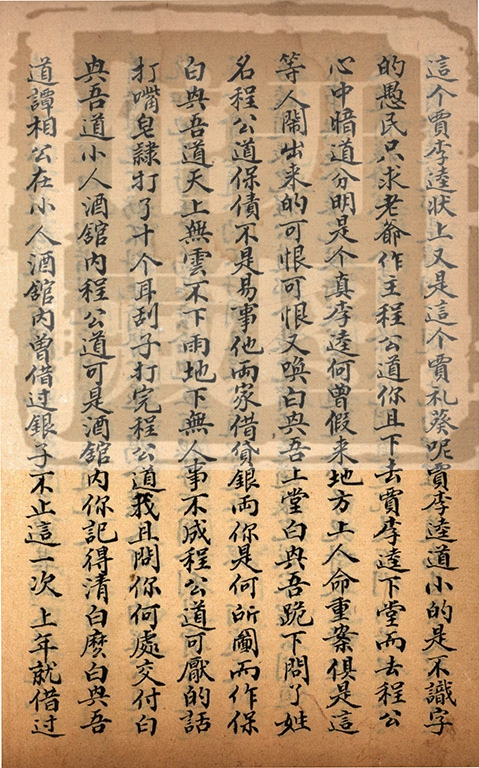 這个賈李逵狀上又是這个賈礼葵呢賈李逵道小的是不識字
的愚民只求老爺作主程公道你且下去賈李逵下堂而去程公
心中暗道分明是个真李逵何曾假来地方上人命重案俱是這
等人閙出来的可恨可恨又喚白與吾上堂白與吾跪下問了姓
名程公道保債不是易事他両家借貸銀両你是何所圖而作保
白與吾道天上無雲不下雨地下無人事不成程公道可厭的話
打嘴皂隸打了十个耳刮子打完程公道我且問你何處交付白
與吾道小人酒舘內程公道可是酒舘內你記得清白麽白與吾
道譚相公在小人酒舘內曾借过銀子不止這一次上年就借过